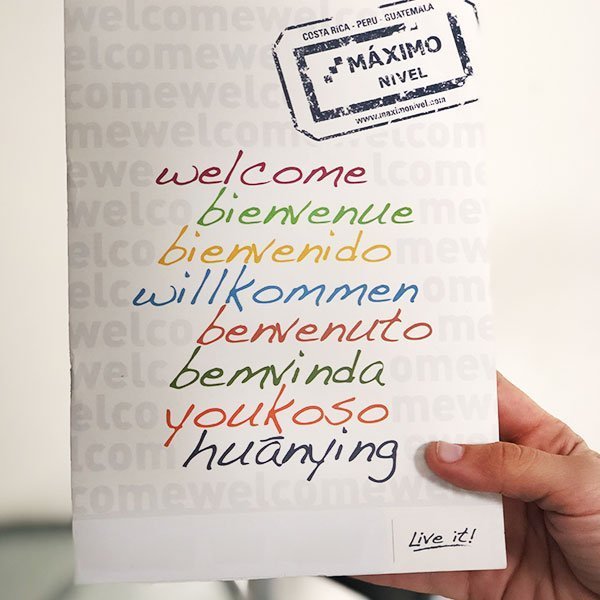 COSTA RICA - PERU - GUATEMALA
MÁXIMO
NIVEL
www.maximonivel.com
welcome
bienvenue
bienvenido
willkommen
benvenuto
bemvinda
youkoso
huānying
Live it!